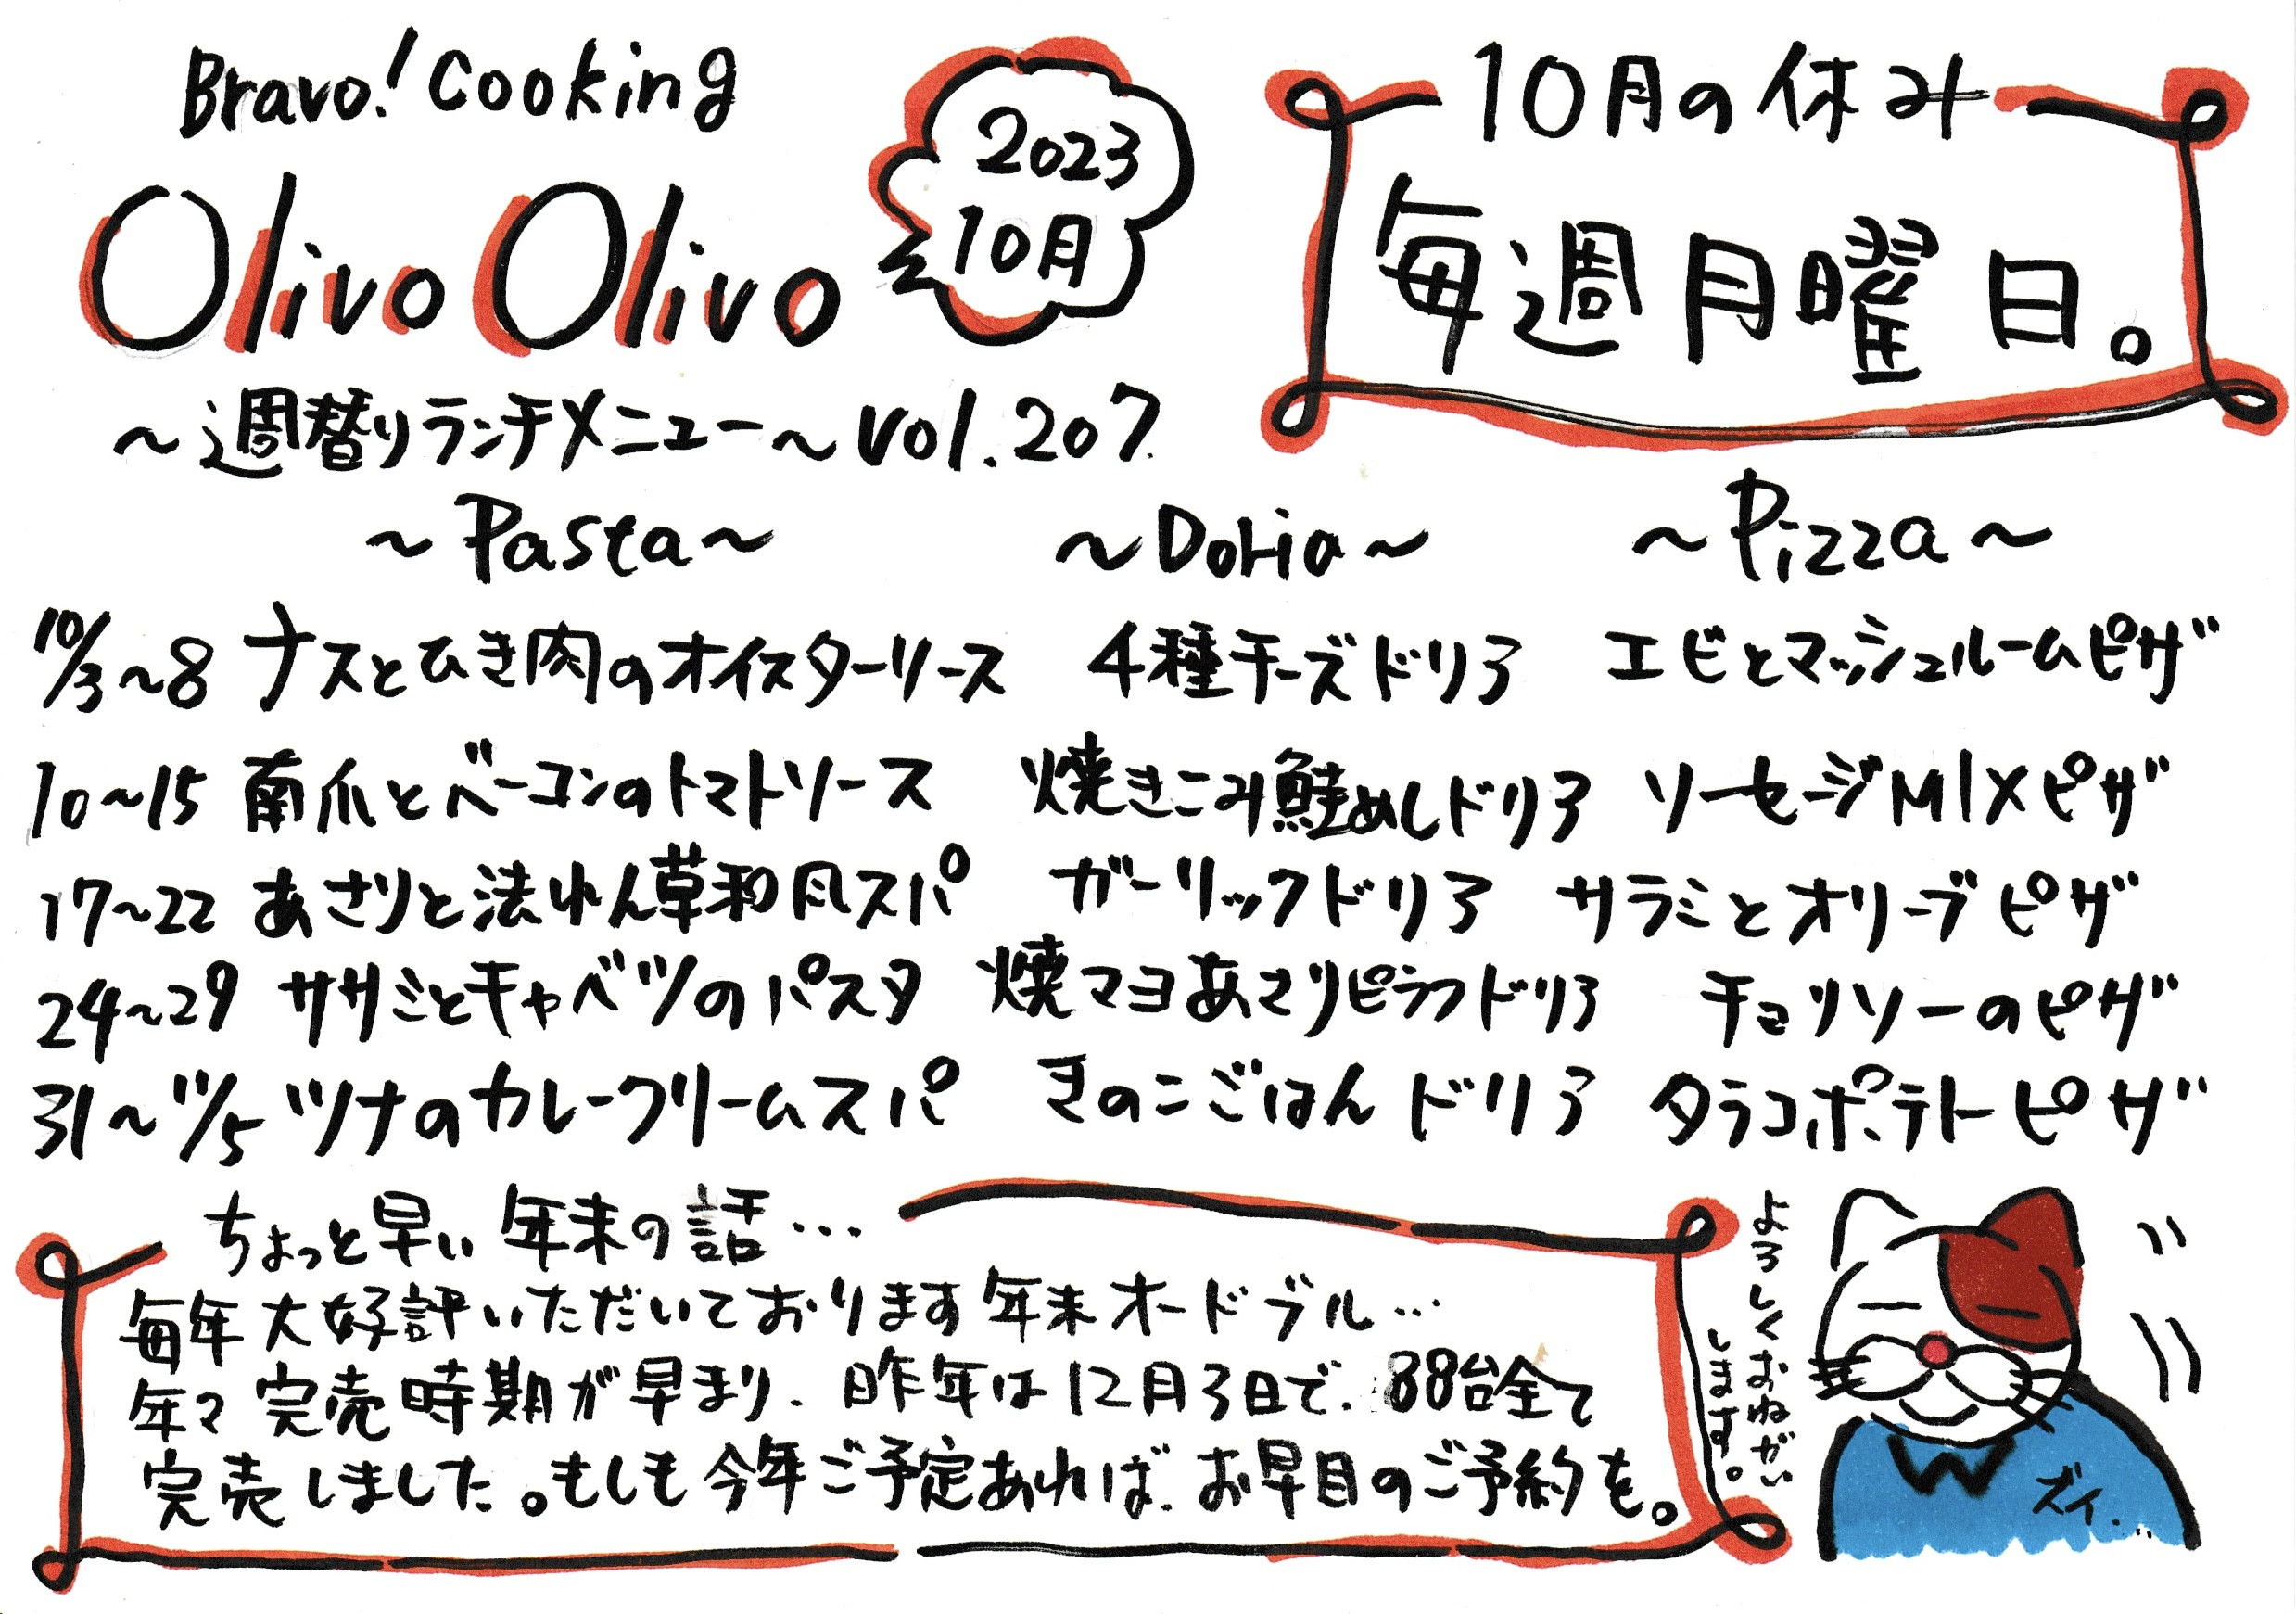 Bravo! Cooking
Olivo Olivo
2023
10月
10月の休み
毎週月曜日。
～週替りランチメニュー～vol.207.
～Pasta～ ～Doria～ ～Pizza～
10/3～8 ナスとひき肉のオイスターソース 4種チーズドリア エビとマッシュルームピザ
10～15 南爪とベーコンのトマトソース 焼きこみ鮭めしドリア ソーセージMIXピザ
17～22 あさりと法れん草和風スパ ガーリックドリア サラミとオリーブピザ
24～29 ササミとキャベツのパスタ 焼マヨあさりピラフドリア チョリソーのピザ
31～11/5 ツナのカレークリームスパ きのこごはんドリア タラコポテトピザ
ちょっと早い年末の話…
毎年大好評いただいております年末オードブル…
年々完売時期が早まり、昨年は12月3日で、88台全て
完売しました。もしも今年ご予定あれば、お早目のご予約を。
よろしくおねがい
します。
ズイ…